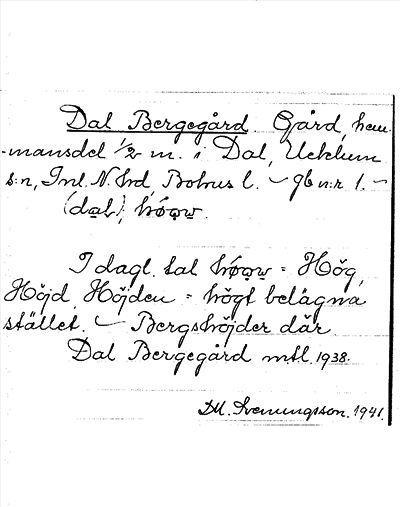 Dal Bergegård. Gård, hem-
mansdel 1/2 m. i Dal, Ucklum
s:n, Inl. N. hd, Bohus l. – gb n:r 1. –
(da̱l),
I dagl. tal = Hög,
Höjd, Höjden = högt belägna
stället. – Bergshöjder där.
Dal Bergegård mtl. 1938.
M. Svenungsson. 1941.